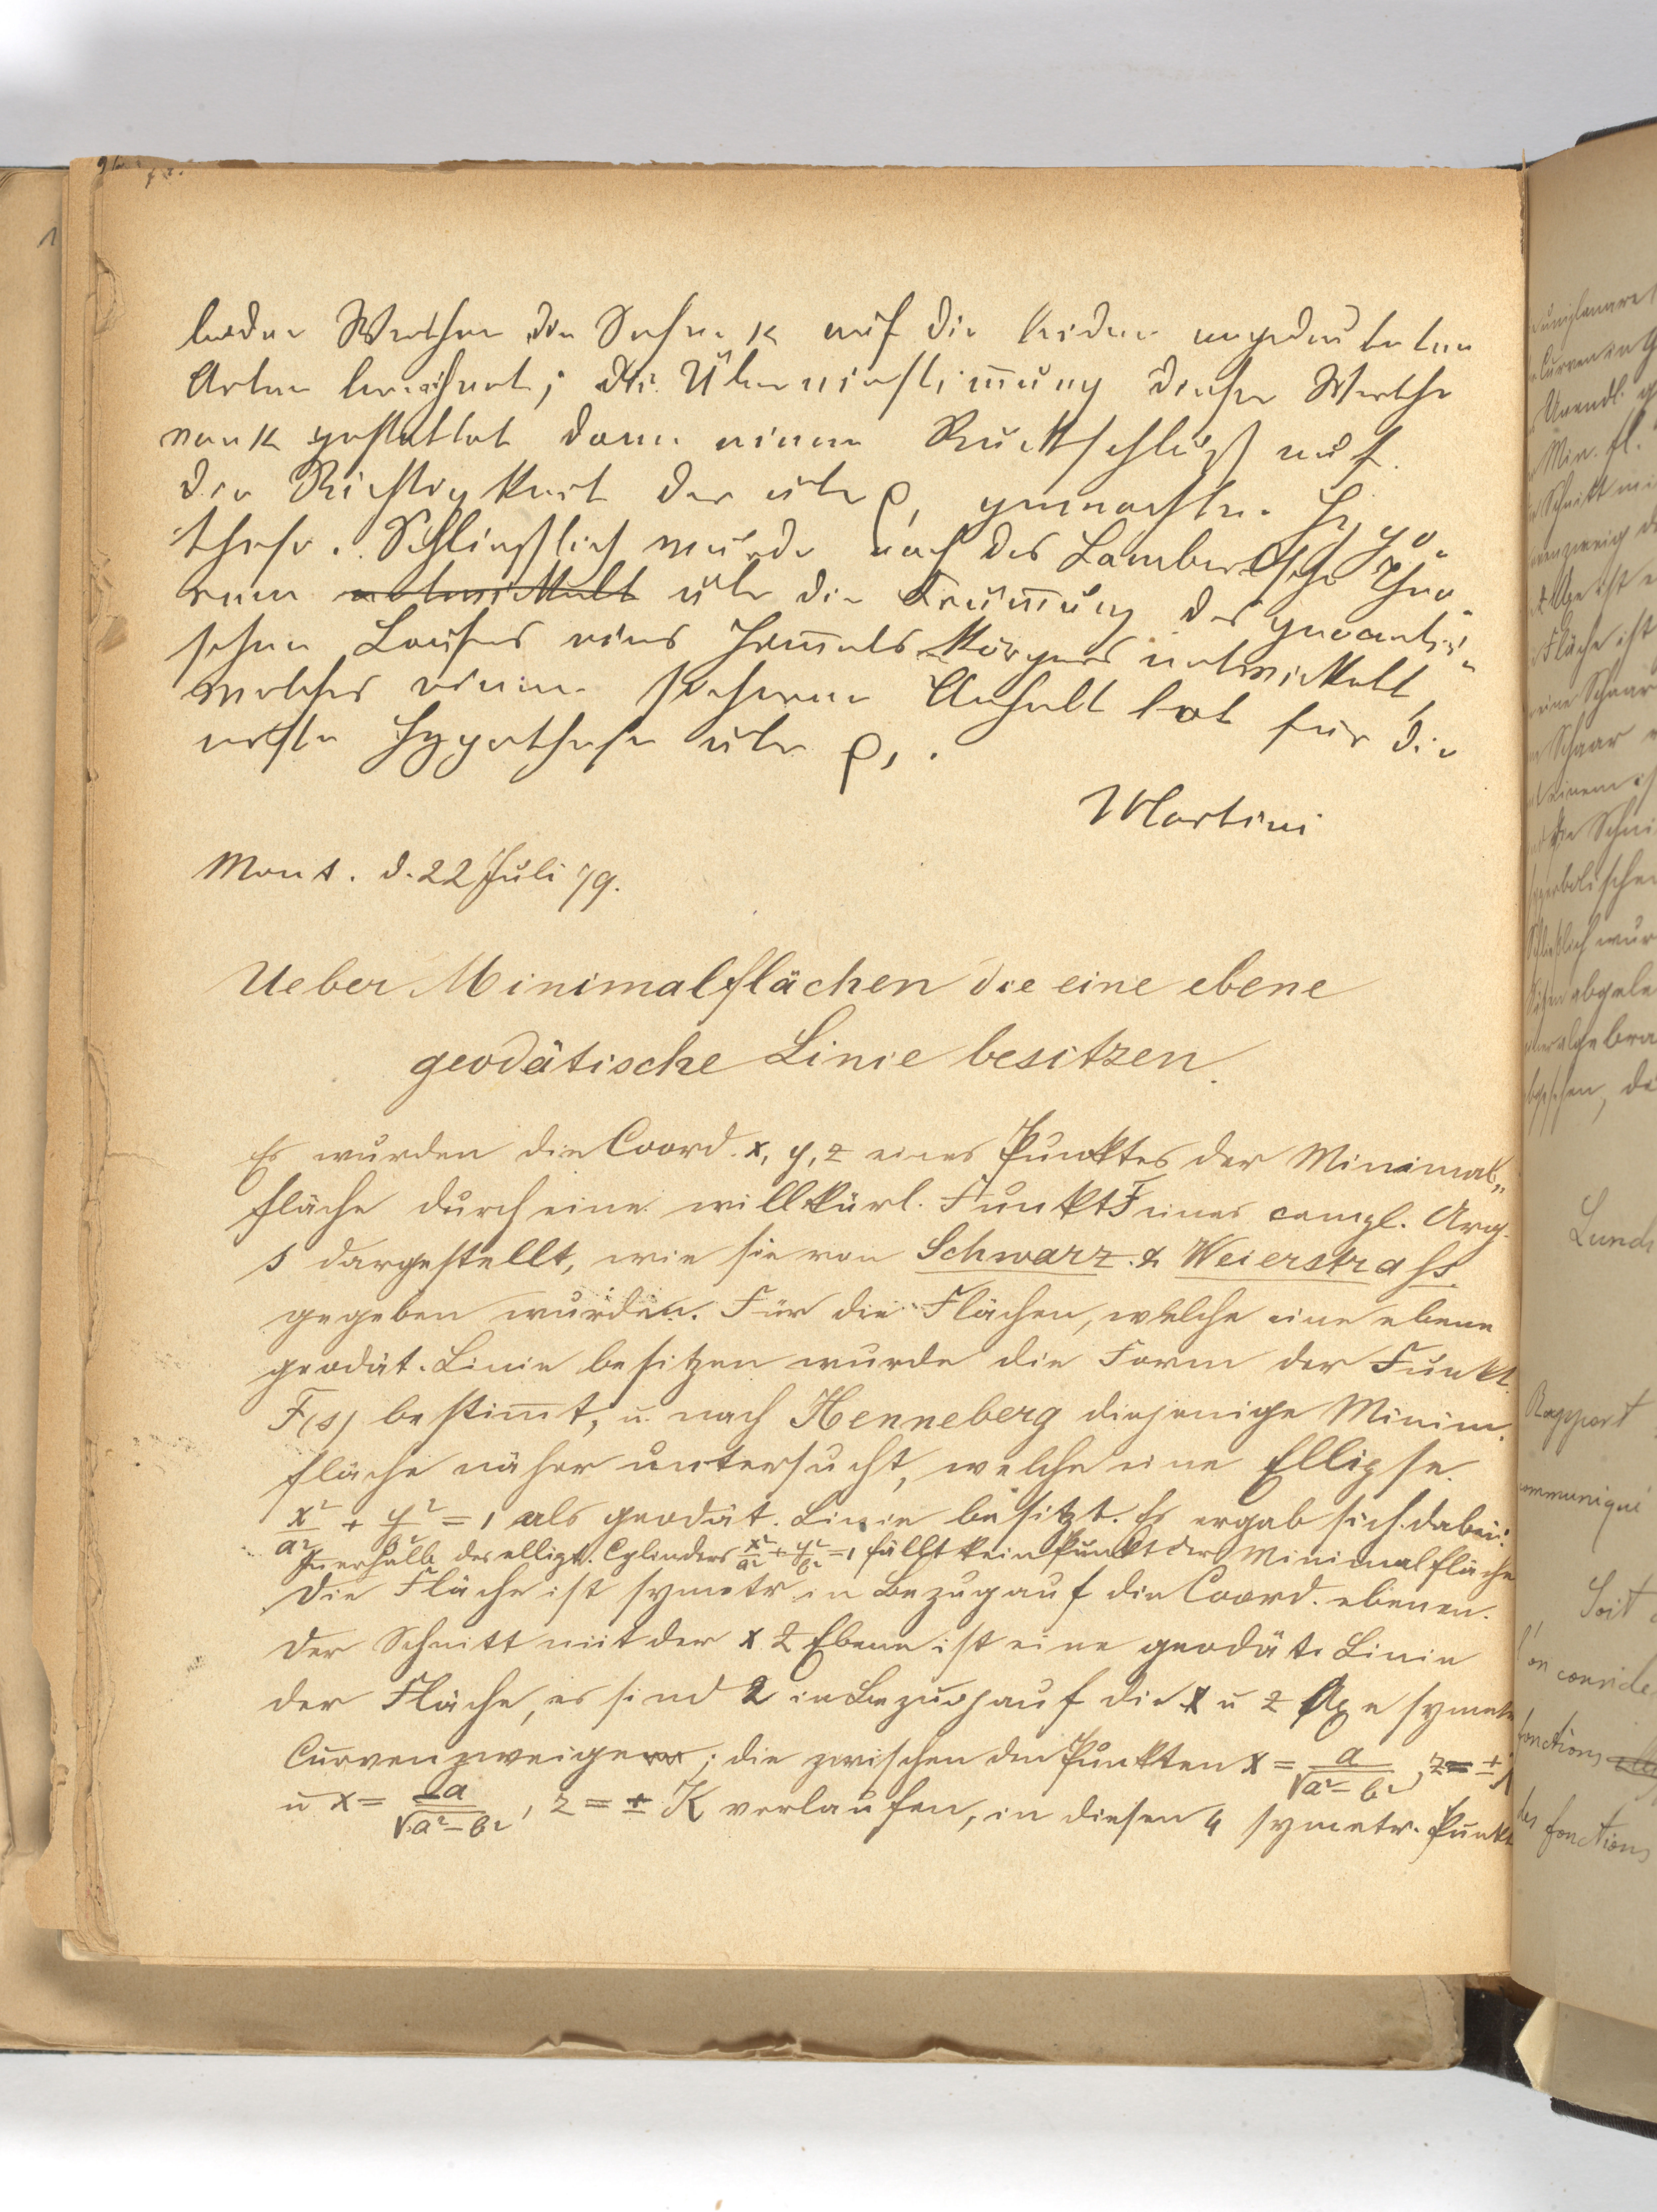 beiden Werthe die Sehne k auf die beiden angedeuteten
Arten berechnet; die Übereinstimmung dieser Werthe
von k gestattet dann einen Rückschluß auf
die Richtigkeit der über ρ, gemachten Hypo-
these. Schließlich wurde noch das Lambertsche Theo-
rem entwickelt über die Krümmung des geocentri-
schen Laufes eines Himmels-Körpers entwickelt,
welches einen sicheren Anhalt bot für die
erste Hypothese über ρ,.
Martini
Mont. d. 22 Juli 79.
Ueber Minimalflächen die eine ebene
geodätische Linie besitzen.
Es wurden die Coord. x, y, z eines Punktes der Minimal„
fläche durch eine willkürl. Funkt F eines compl. Arg.
s dargestellt, wie sie von Schwarz & Weierstrass
gegeben wurden. Für die Flächen, welche eine ebene
geodät. Linie besitzen wurde die Form der Funkt.
F(s) bestim̄t, u. nach Henneberg diejenige Minim.
fläche näher untersucht, welche eine Ellipse
x²/a² + y²/b² = 1 als geodät. Linie besitzt. Es ergab sich dabei:
Innerhalb des ellipt. Cylinders x²/a² + y²/b² = 1 fällt kein Punkt der Minimalfläche
Die Fläche ist symetr. in Bezug auf die Coord. ebenen.
Der Schnitt mit der x z Ebene ist eine geodät. Linie
der Fläche, es sind 2 in Bezug auf die x u z Axe symetr
Curvenzweige; die zwischen den Punkten x = a/√a²-b², z = ±K
u x = -a/√a²-b², z = ± K verlaufen, in diesen 4 symetr. Punkt
Lund
Rapport
communiqué
Soit
on conside
fonctions
des fonctions